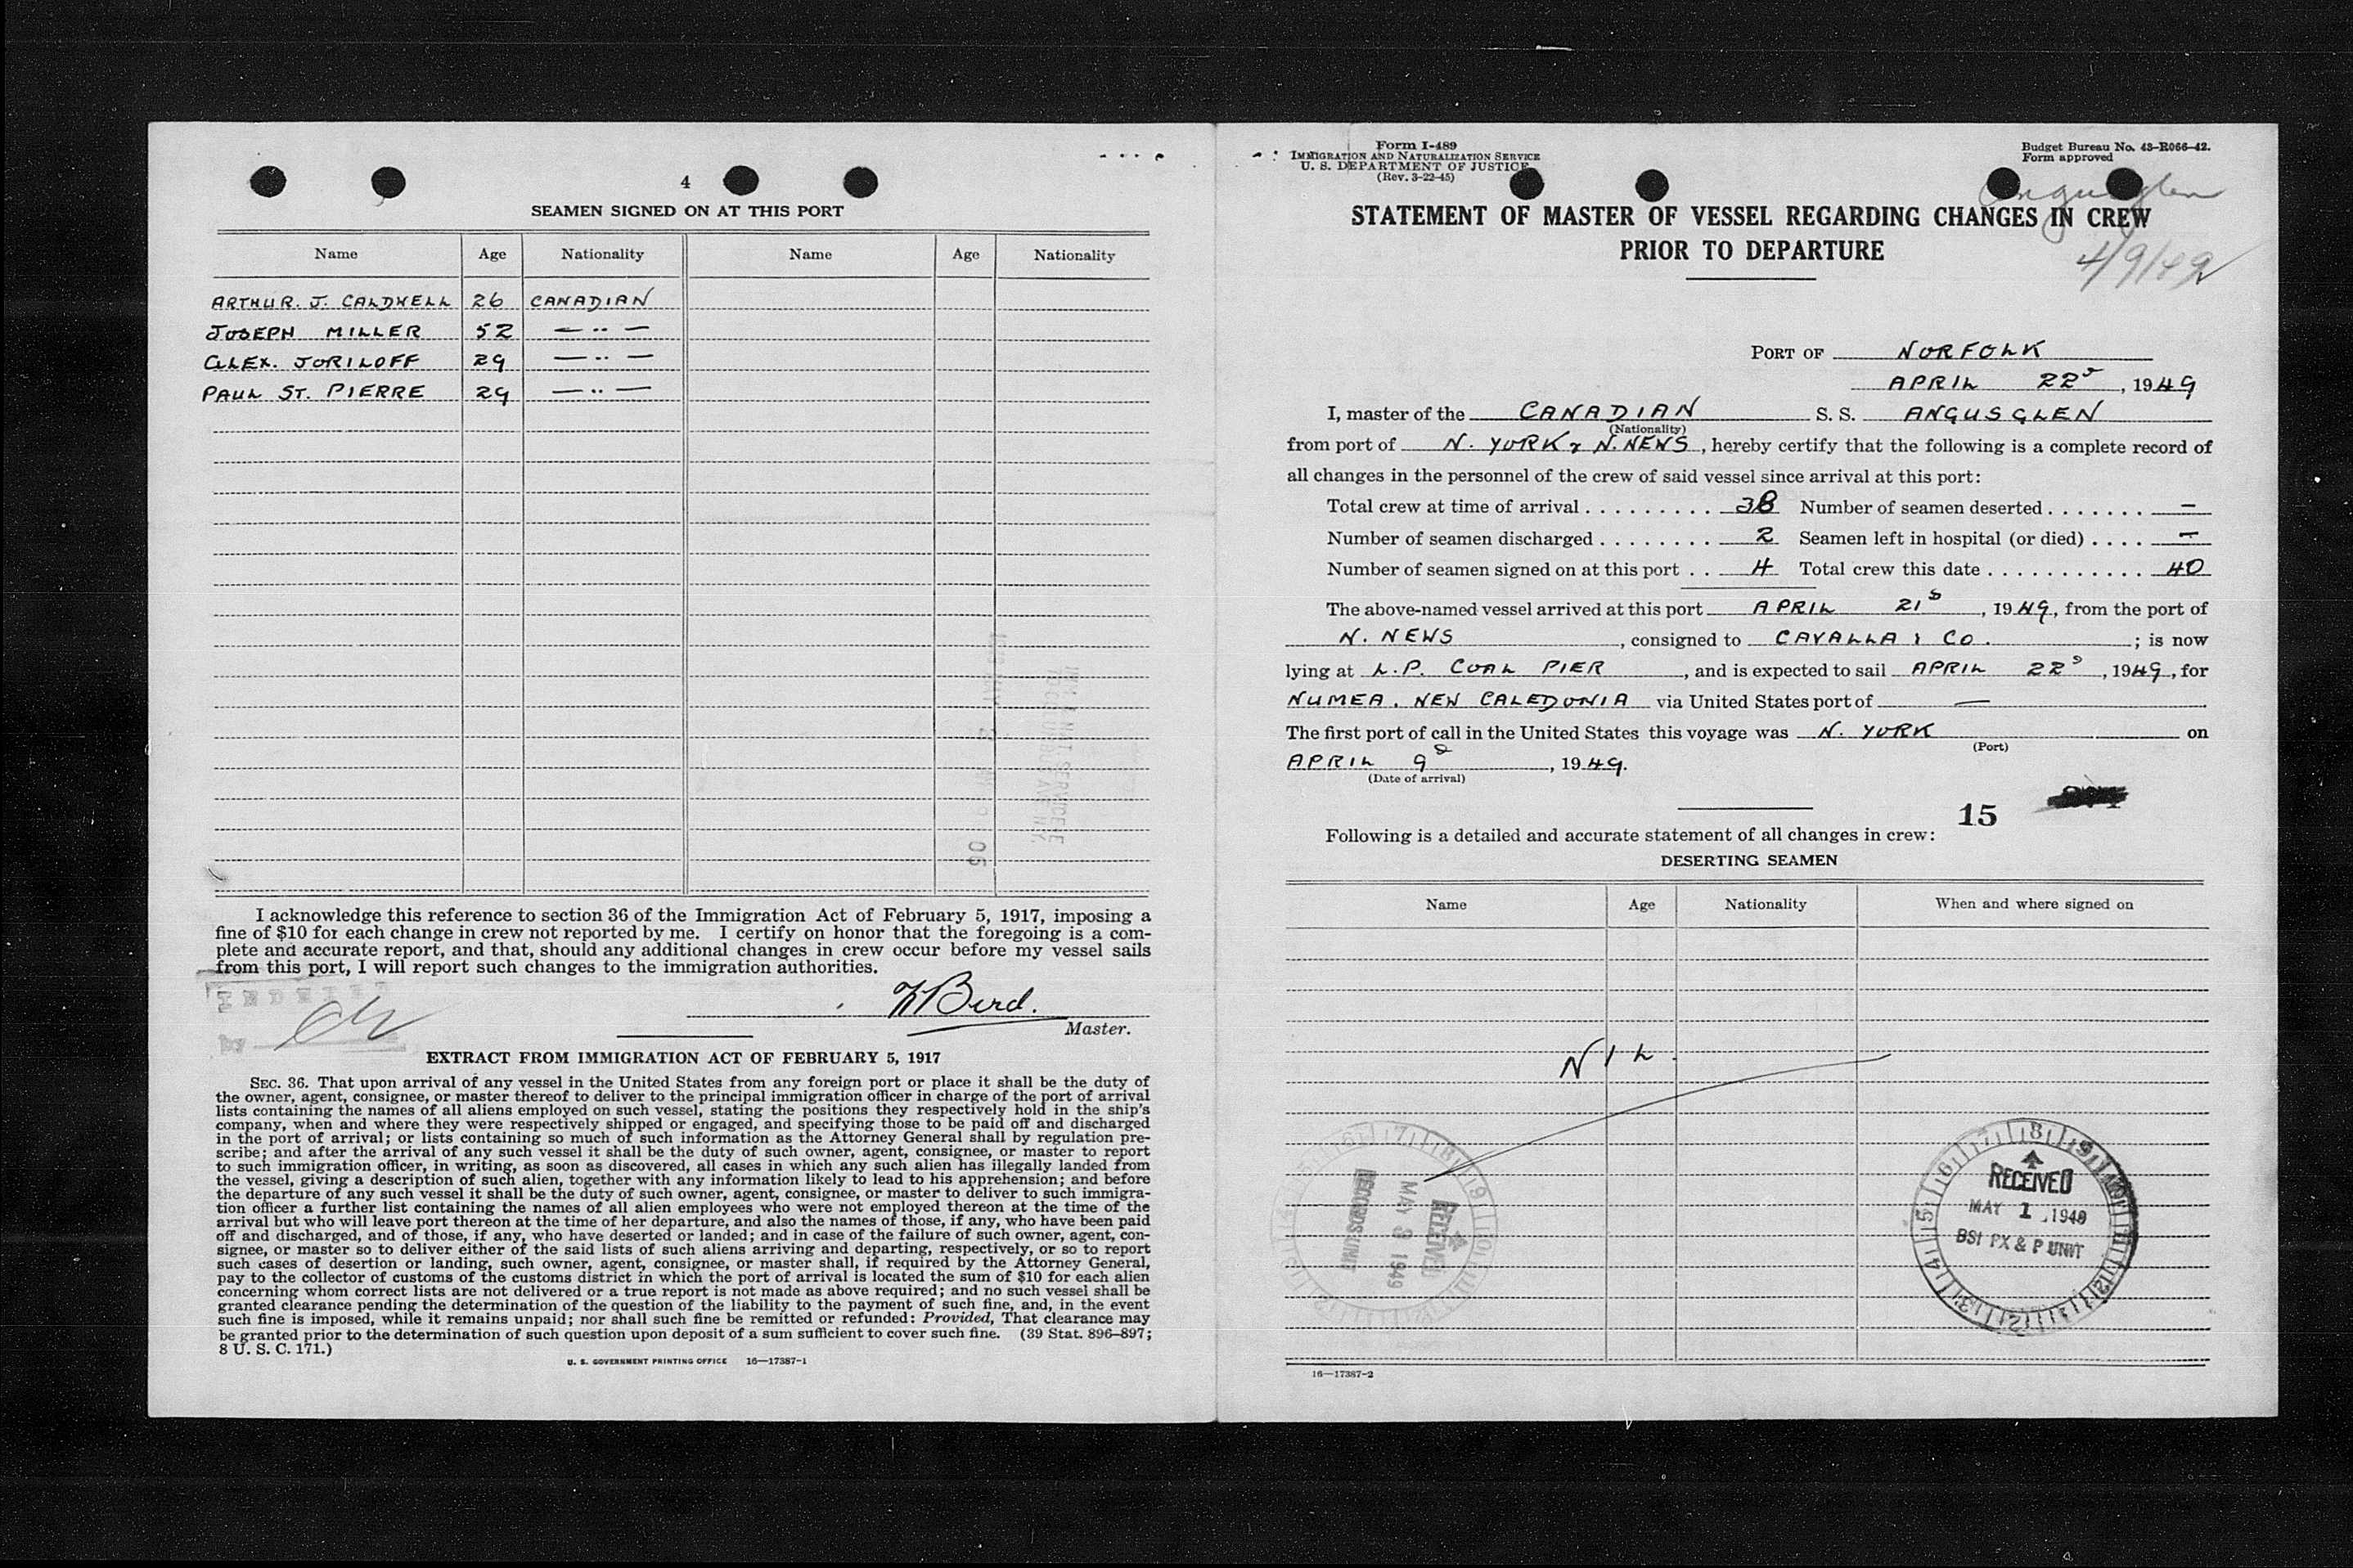 4
SEAMEN SIGNED ON AT THIS PORT
Name Age Nationality Name Age Nationality
ARTHUR. J. CALDWELL 26 CANADIAN
JOSEPH MILLER 52 — ·· —
ALEX. JORILOFF 29 — ·· —
PAUL ST. PIERRE 29 — ·· —
I acknowledge this reference to section 36 of the Immigration Act of February 5, 1917, imposing a
fine of $10 for each change in crew not reported by me. I certify on honor that the foregoing is a com-
plete and accurate report, and that, should any additional changes in crew occur before my vessel sails
from this port, I will report such changes to the immigration authorities.
Bird.
Master.
by
EXTRACT FROM IMMIGRATION ACT OF FEBRUARY 5, 1917
SEC. 36. That upon arrival of any vessel in the United States from any foreign port or place it shall be the duty of
the owner, agent, consignee, or master thereof to deliver to the principal immigration officer in charge of the port of arrival
lists containing the names of all aliens employed on such vessel, stating the positions they respectively hold in the ship's
company, when and where they were respectively shipped or engaged, and specifying those to be paid off and discharged
in the port of arrival; or lists containing so much of such information as the Attorney General shall by regulation pre-
scribe; and after the arrival of any such vessel it shall be the duty of such owner, agent, consignee, or master to report
to such immigration officer, in writing, as soon as discovered, all cases in which any such alien has illegally landed from
the vessel, giving a description of such alien, together with any information likely to lead to his apprehension; and before
the departure of any such vessel it shall be the duty of such owner, agent, consignee, or master to deliver to such immigra-
tion officer a further list containing the names of all alien employees who were not employed thereon at the time of the
arrival but who will leave port thereon at the time of her departure, and also the names of those, if any, who have been paid
off and discharged, and of those, if any, who have deserted or landed; and in case of the failure of such owner, agent, con-
signee, or master so to deliver either of the said lists of such aliens arriving and departing, respectively, or so to report
such cases of desertion or landing, such owner, agent, consignee, or master shall, if required by the Attorney General,
pay to the collector of customs of the customs district in which the port of arrival is located the sum of $10 for each alien
concerning whom correct lists are not delivered or a true report is not made as above required; and no such vessel shall be
granted clearance pending the determination of the question of the liability to the payment of such fine, and, in the event
such fine is imposed, while it remains unpaid; nor shall such fine be remitted or refunded: Provided, That clearance may
be granted prior to the determination of such question upon deposit of a sum sufficient to cover such fine. (39 Stat. 896–897;
8 U. S. C. 171.)
U. S. GOVERNMENT PRINTING OFFICE 16—17387-1
Form I-489
IMMIGRATION AND NATURALIZATION SERVICE
U. S. DEPARTMENT OF JUSTICE
(Rev. 3-22-45)
Budget Bureau No. 43-R066-42.
Form approved
Angusglen
4/9/49
STATEMENT OF MASTER OF VESSEL REGARDING CHANGES IN CREW
PRIOR TO DEPARTURE
PORT OF NORFOLK
APRIL 22ⁿᵈ, 1949
I, master of the CANADIAN S. S. ANGUSGLEN
(Nationality)
from port of N. YORK & N. NEWS, hereby certify that the following is a complete record of
all changes in the personnel of the crew of said vessel since arrival at this port:
Total crew at time of arrival . . . . . . . . . 38 Number of seamen deserted . . . . . . . —
Number of seamen discharged . . . . . . . . 2 Seamen left in hospital (or died) . . . . —
Number of seamen signed on at this port . . 4 Total crew this date . . . . . . . . . . . . 40
The above-named vessel arrived at this port APRIL 21ˢ, 1949, from the port of
N. NEWS, consigned to CAVALLA & CO. ; is now
lying at L.P. COAL PIER, and is expected to sail APRIL 22ᵈ, 1949, for
NUMEA. NEW CALEDONIA via United States port of —
The first port of call in the United States this voyage was N. YORK on
(Port)
APRIL 9, 1949.
(Date of arrival)
15
Following is a detailed and accurate statement of all changes in crew:
DESERTING SEAMEN
Name Age Nationality When and where signed on
NIL.
RECEIVED
MAY 3 1949
RECORDS UNIT
RECEIVED
MAY 1 1949
BSI PX & P UNIT
16—17387-2